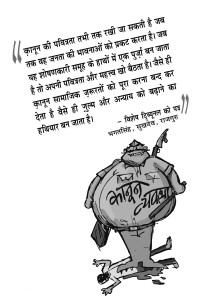 “कानून की पवित्रता तभी तक रखी जा सकती है जब
तक वह जनता की भावनाओं को प्रकट करता है। जब
वह शोषणकारी समूह के हाथों में एक पुर्ज़ा बन जाता
है तो अपनी पवित्रता और महत्व खो बैठता है। जैसे ही
कानून सामाजिक ज़रूरतों को पूरा करना बन्द कर
देता है वैसे ही जुल्म और अन्याय को बढ़ाने का
हथियार बन जाता है।”
– विशेष ट्रिब्यूनल को पत्र
भगतसिंह, सुखदेव, राजगुरु
कानून
व्यवस्था